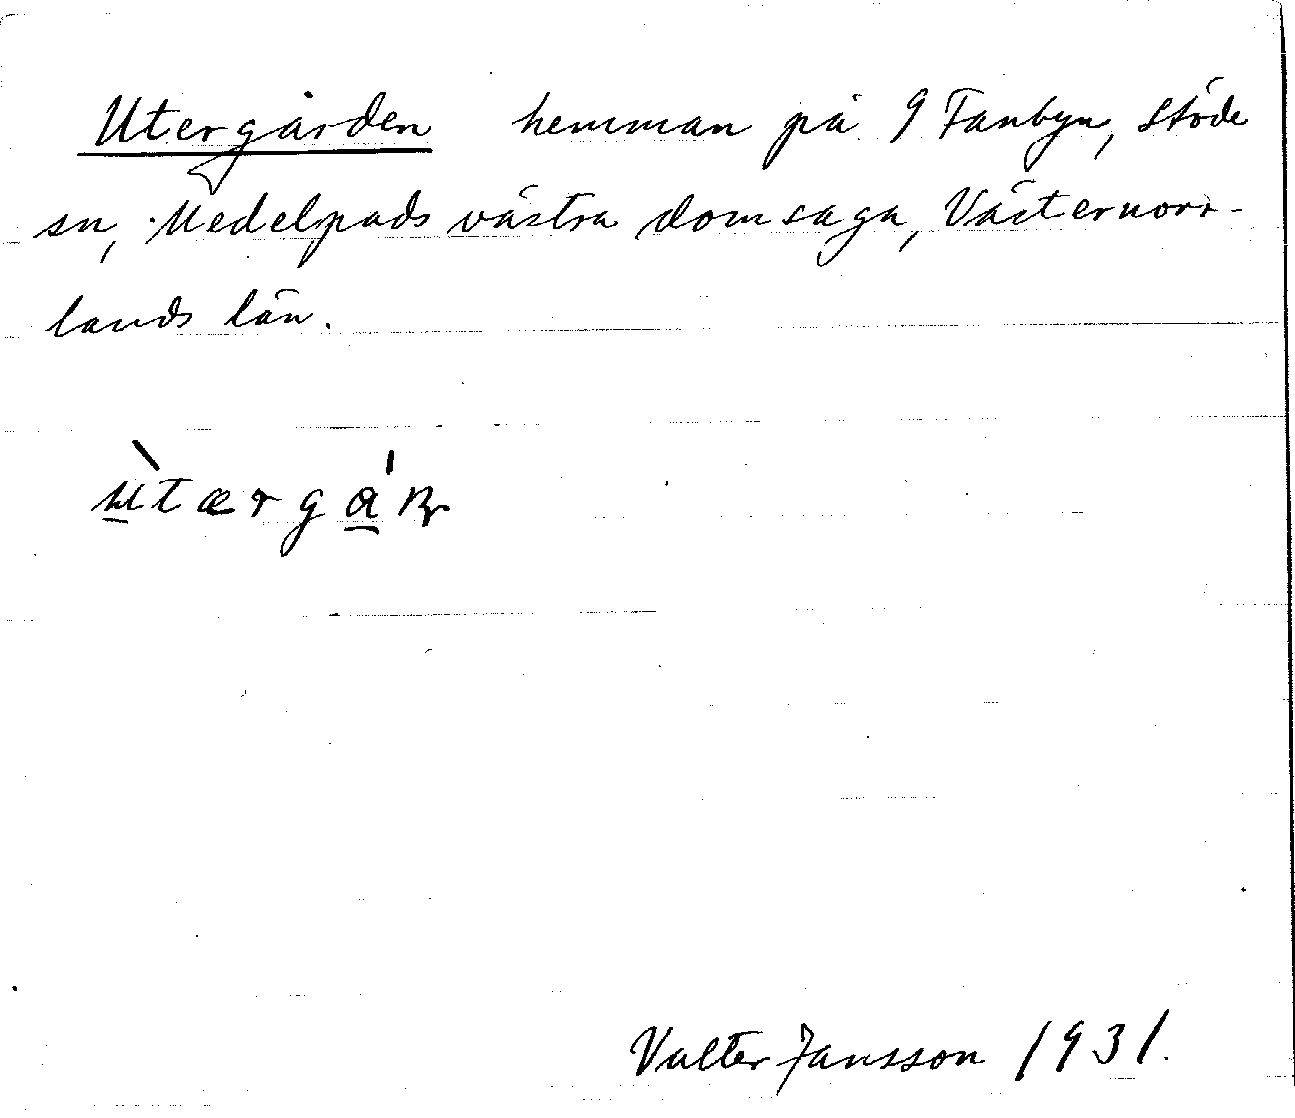 Utergården hemman på 9 Fanbyn, Stöde
sn, Medelpads västra domsaga, Västernorr-
lands län.
ùtærgá
Valter Jansson 1931.